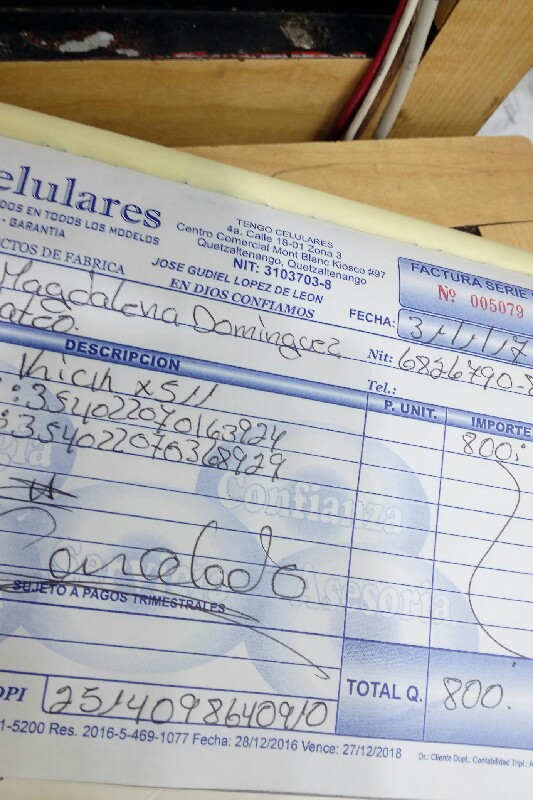 elulares
DOS EN TODOS LOS MODELOS
- GARANTIA
CTOS DE FABRICA
TENGO CELULARES
4a. Calle 18-01 Zona 3
Centro Comercial Mont Blanc Kiosco #97
Quetzaltenango, Quetzaltenango
NIT: 3103703-8
JOSE GUDIEL LOPEZ DE LEON
EN DIOS CONFIAMOS
FACTURA SERIE
Nº 005079
FECHA: 3/1/17
Magdalena Dominguez
Nit: 6826790-8
ateo.
Tel.:
DESCRIPCION P. UNIT. IMPORTE
x511 800.
:354022070163924
:354022070368929
Confianza
Cancelado
Asesoria
SUJETO A PAGOS TRIMESTRALES
DPI 2514098640910
TOTAL Q. 800.
1-5200 Res. 2016-5-469-1077 Fecha: 28/12/2016 Vence: 27/12/2018
Or.: Cliente Dupl.: Contabilidad Tripl.: A